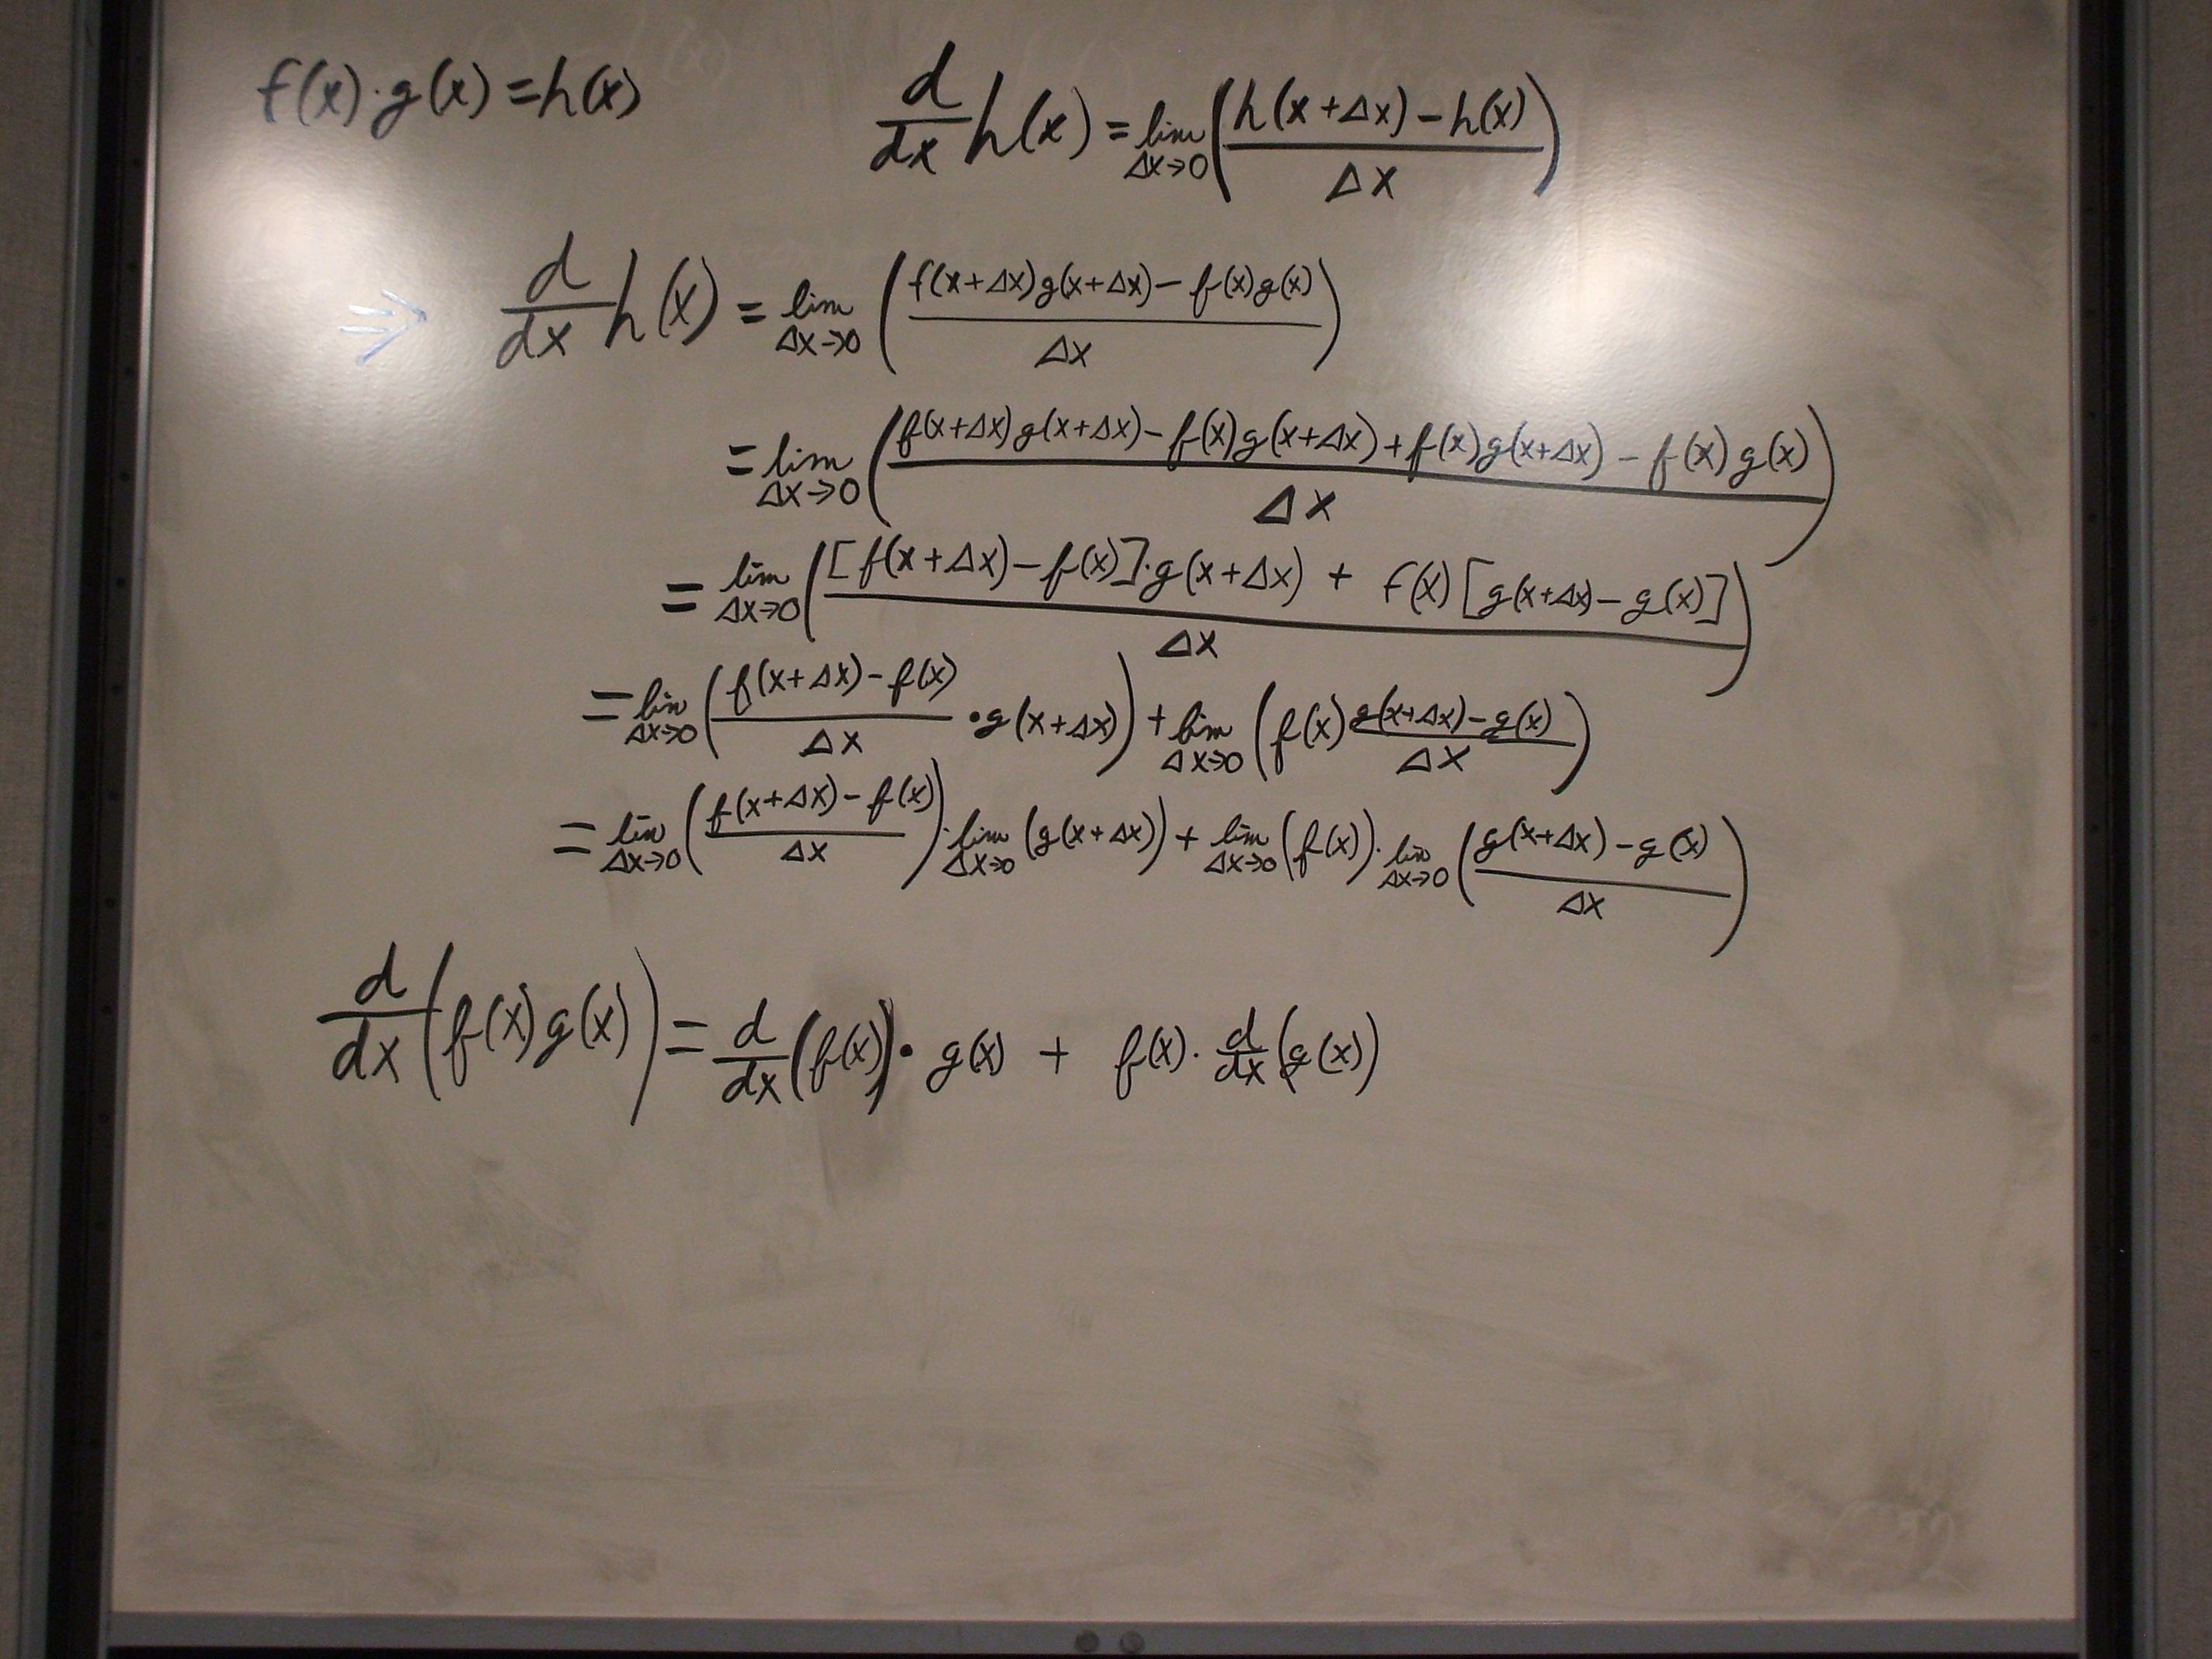 f(x)·g(x)=h(x)    d/dx h(x) = lim Δx→0 ( (h(x+Δx)-h(x)) / Δx )
⇒ d/dx h(x) = lim Δx→0 ( (f(x+Δx)g(x+Δx)-f(x)g(x)) / Δx )
= lim Δx→0 ( (f(x+Δx)g(x+Δx)-f(x)g(x+Δx)+f(x)g(x+Δx)-f(x)g(x)) / Δx )
= lim Δx→0 ( ([f(x+Δx)-f(x)]·g(x+Δx) + f(x)[g(x+Δx)-g(x)]) / Δx )
= lim Δx→0 ( (f(x+Δx)-f(x)) / Δx · g(x+Δx) ) + lim Δx→0 ( f(x) (g(x+Δx)-g(x)) / Δx )
= lim Δx→0 ( (f(x+Δx)-f(x)) / Δx ) · lim Δx→0 (g(x+Δx)) + lim Δx→0 (f(x)) · lim Δx→0 ( (g(x+Δx)-g(x)) / Δx )
d/dx (f(x)g(x)) = d/dx (f(x)) · g(x) + f(x) · d/dx (g(x))